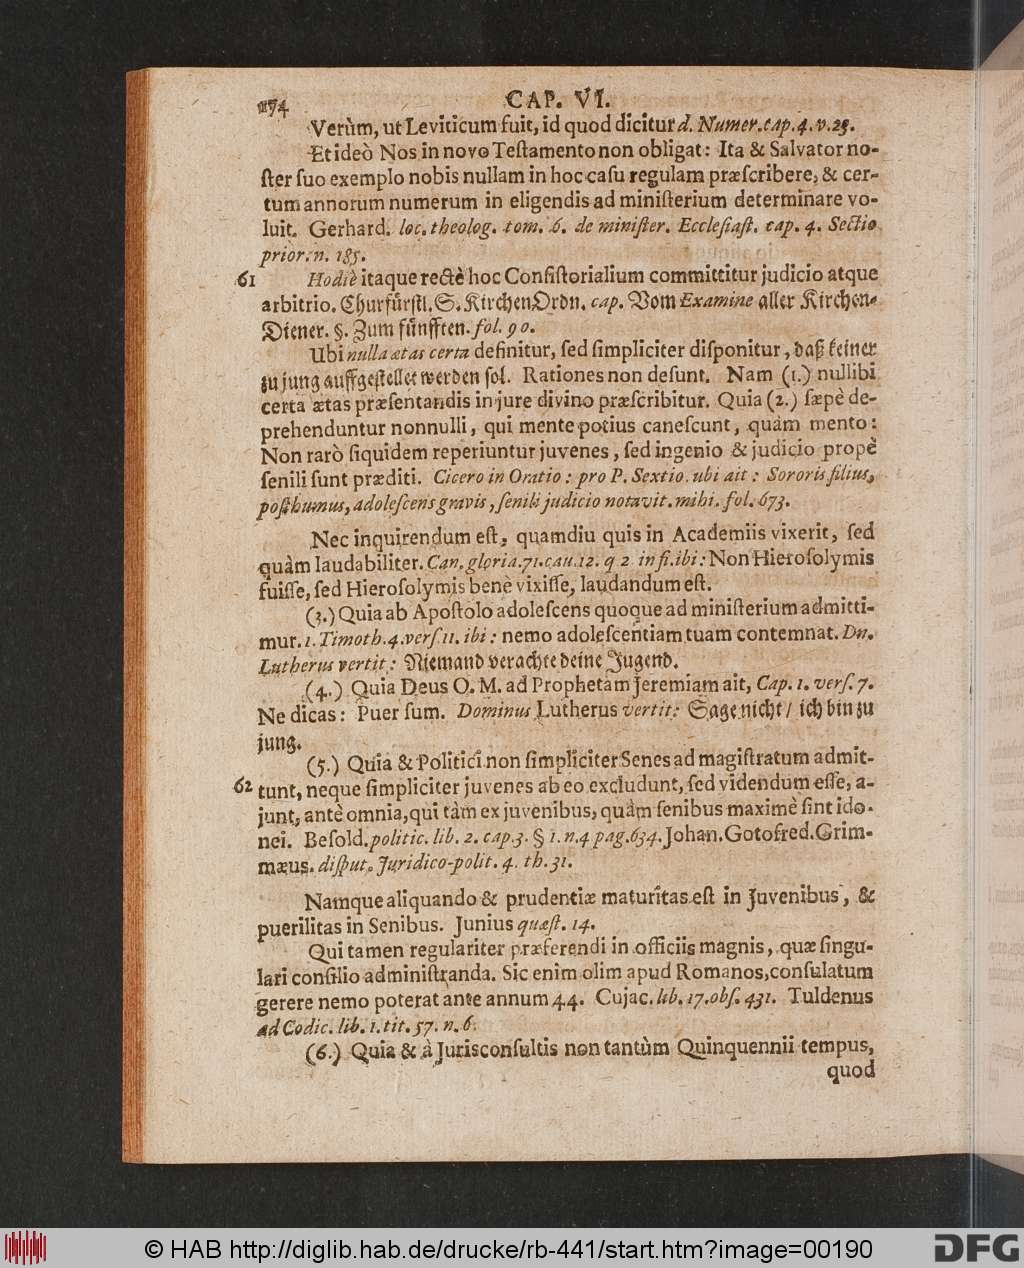 174 CAP. VI.
Verùm, ut Leviticum fuit, id quod dicitur d. Numer. cap. 4. v. 23.
Et ideò Nos in novo Teſtamento non obligat: Ita & Salvator no-
ſter ſuo exemplo nobis nullam in hoc caſu regulam præſcribere, & cer-
tum annorum numerum in eligendis ad miniſterium determinare vo-
luit. Gerhard. loc. theolog. tom. 6. de miniſter. Eccleſiaſt. cap. 4. Sectio
prior. n. 185.
61 Hodiè itaque rectè hoc Conſiſtorialium committitur judicio atque
arbitrio. Churfürſtl. S. KirchenOrdn. cap. Vom Examine aller Kirchen-
Diener. §. Zum fünfften. fol. 90.
Ubi nulla ætas certa definitur, ſed ſimpliciter diſponitur, daß keiner
zu jung auffgeſtellet werden ſol. Rationes non deſunt. Nam (1.) nullibi
certa ætas præſentandis in jure divino præſcribitur. Quia (2.) ſæpè de-
prehenduntur nonnulli, qui mente potius caneſcunt, quàm mento:
Non rarò ſiquidem reperiuntur juvenes, ſed ingenio & judicio propè
ſenili ſunt præditi. Cicero in Oratio: pro P. Sextio. ubi ait: Sororis filius,
poſthumus, adoleſcens gravis, ſenili judicio notavit. mihi. fol. 673.
Nec inquirendum eſt, quamdiu quis in Academiis vixerit, ſed
quàm laudabiliter. Can. gloria. 71. cau. 12. q 2. in fi. ibi: Non Hieroſolymis
fuiſſe, ſed Hieroſolymis benè vixiſſe, laudandum eſt.
(3.) Quia ab Apoſtolo adoleſcens quoque ad miniſterium admitti-
mur. 1. Timoth. 4. verſ. 11. ibi: nemo adoleſcentiam tuam contemnat. Dn.
Lutherus vertit: Niemand verachte deine Jugend.
(4.) Quia Deus O. M. ad Prophetam Jeremiam ait, Cap. 1. verſ. 7.
Ne dicas: Puer ſum. Dominus Lutherus vertit: Sage nicht / ich bin zu
jung.
(5.) Quia & Politici non ſimpliciter Senes ad magiſtratum admit-
62 tunt, neque ſimpliciter juvenes ab eo excludunt, ſed videndum eſſe, a-
junt, antè omnia, qui tàm ex juvenibus, quàm ſenibus maximè ſint ido-
nei. Beſold. politic. lib. 2. cap. 3. § 1. n. 4 pag. 634. Johan. Gotofred. Grim-
mæus. diſput. Juridico-polit. 4. th. 31.
Namque aliquando & prudentiæ maturitas eſt in Juvenibus, &
puerilitas in Senibus. Junius quæſt. 14.
Qui tamen regulariter præferendi in officiis magnis, quæ ſingu-
lari conſilio adminiſtranda. Sic enim olim apud Romanos, conſulatum
gerere nemo poterat ante annum 44. Cujac. lib. 17. obſ. 431. Tuldenus
ad Codic. lib. 1. tit. 57. n. 6.
(6.) Quia & à Jurisconſultis non tantùm Quinquennii tempus,
quod
© HAB http://diglib.hab.de/drucke/rb-441/start.htm?image=00190
DFG